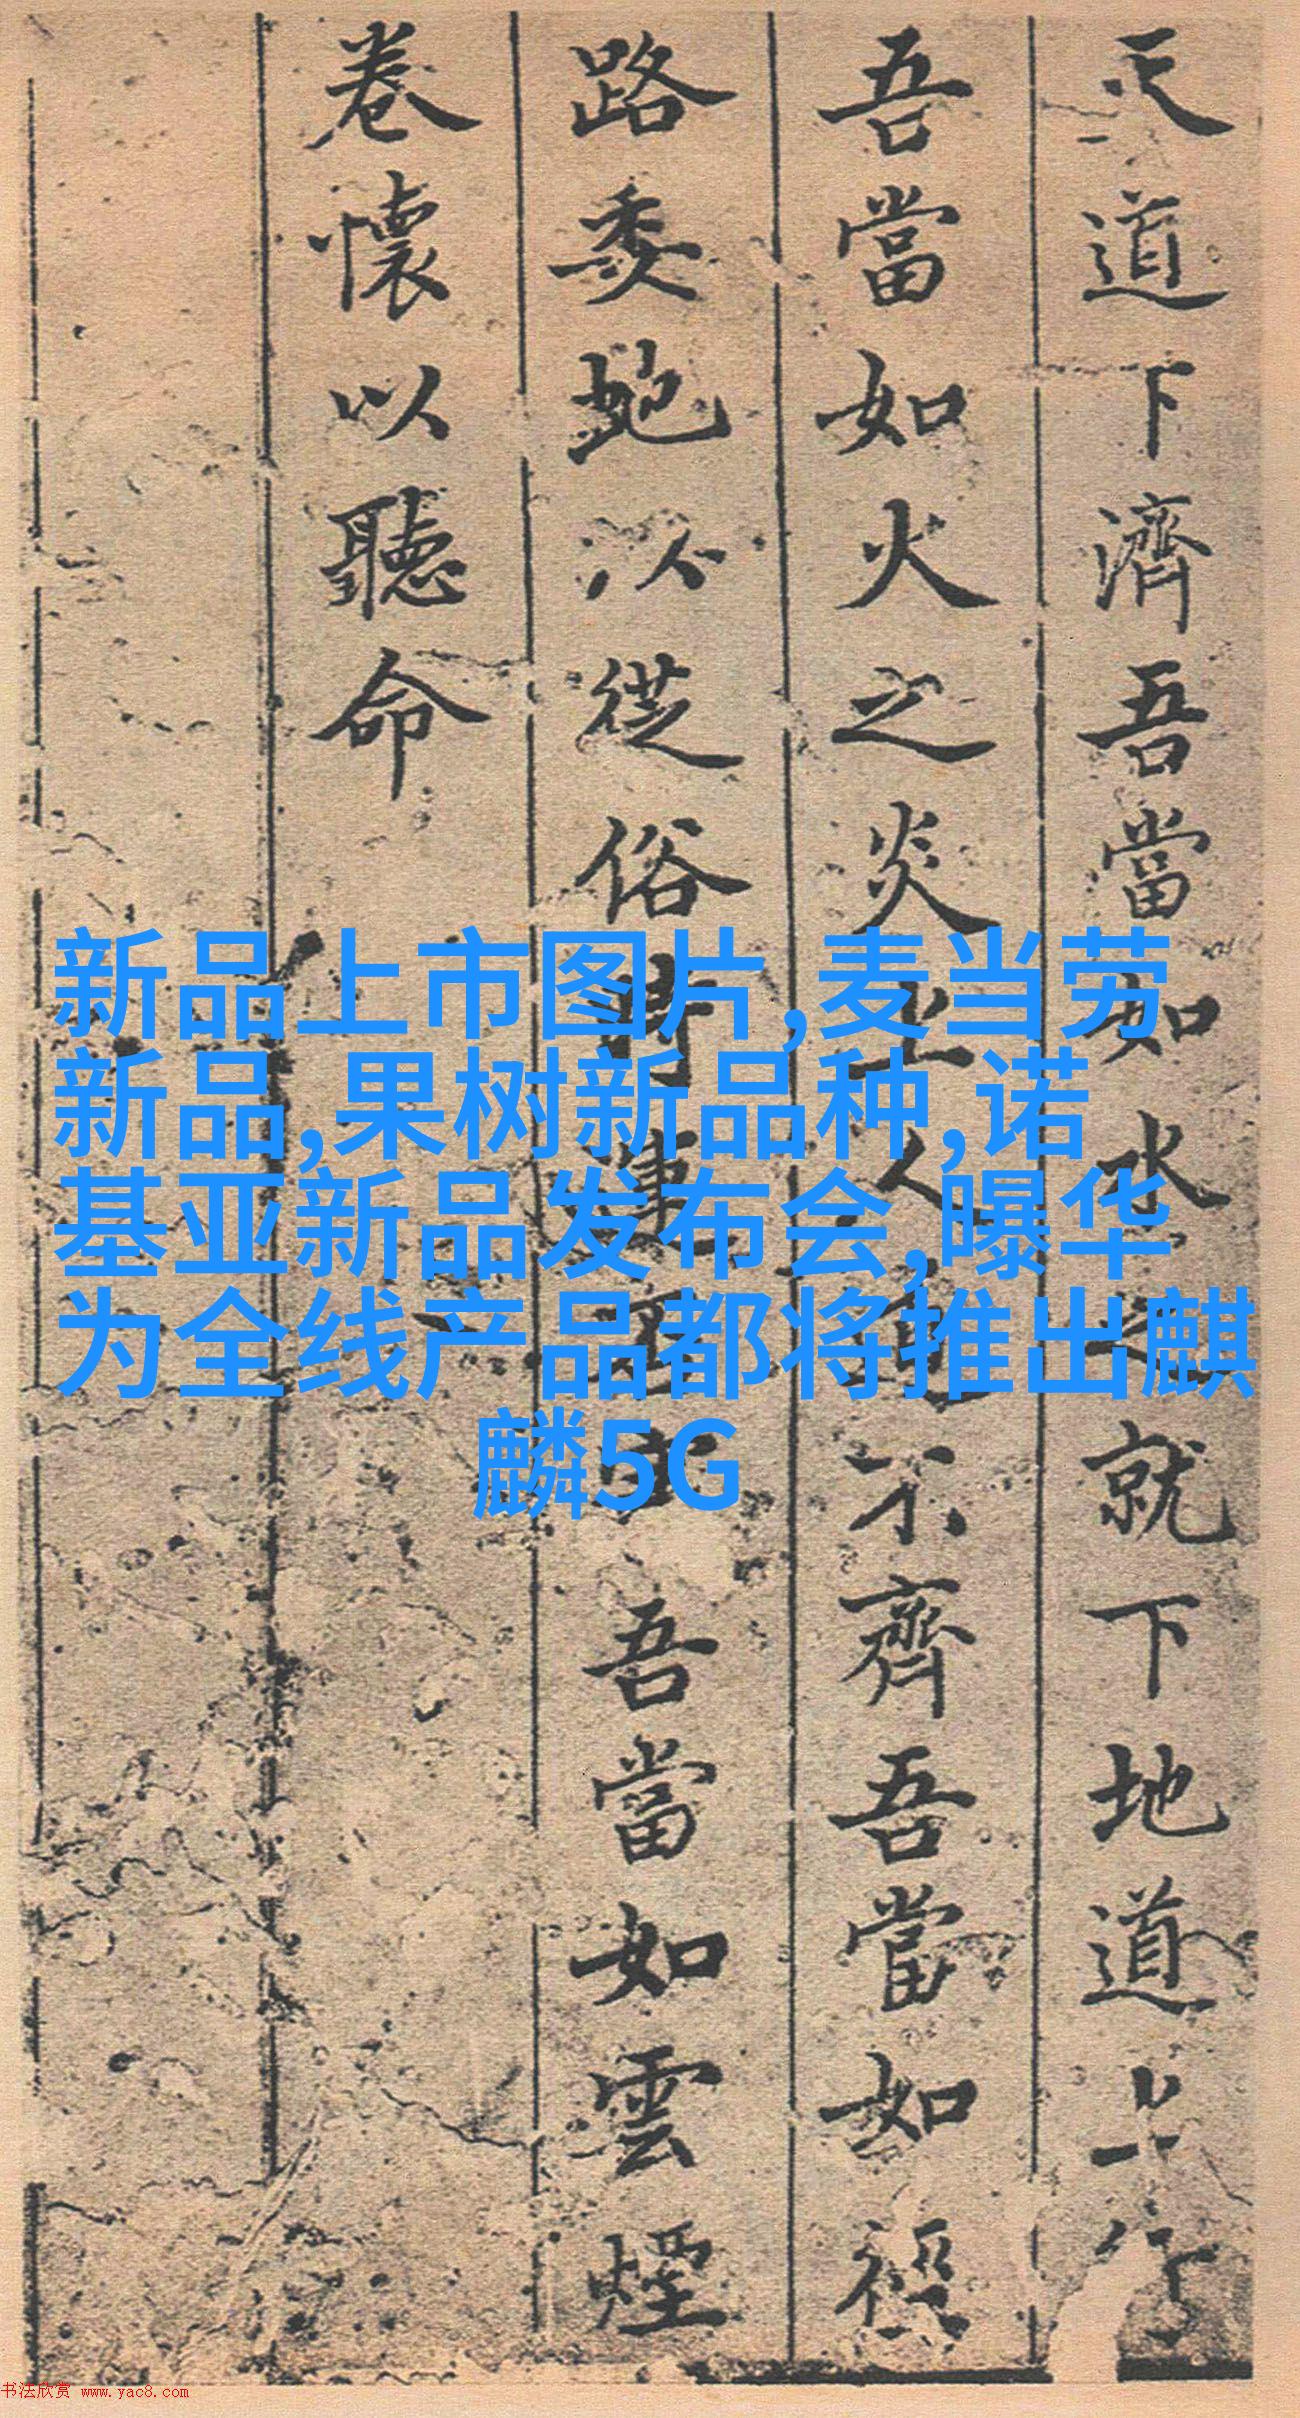 天道下濟吾當如水之就下地道上行
吾當如火之炎上人道不齊吾當如徑
路委虵以從俗時吾當如雲煙
卷懷以聽命
新品上市图片,麦当劳
新品,果树新品种,诺
基亚新品发布会,曝华
为全线产品都将推出麒
麟5G
书法欣赏 www.yac8.com